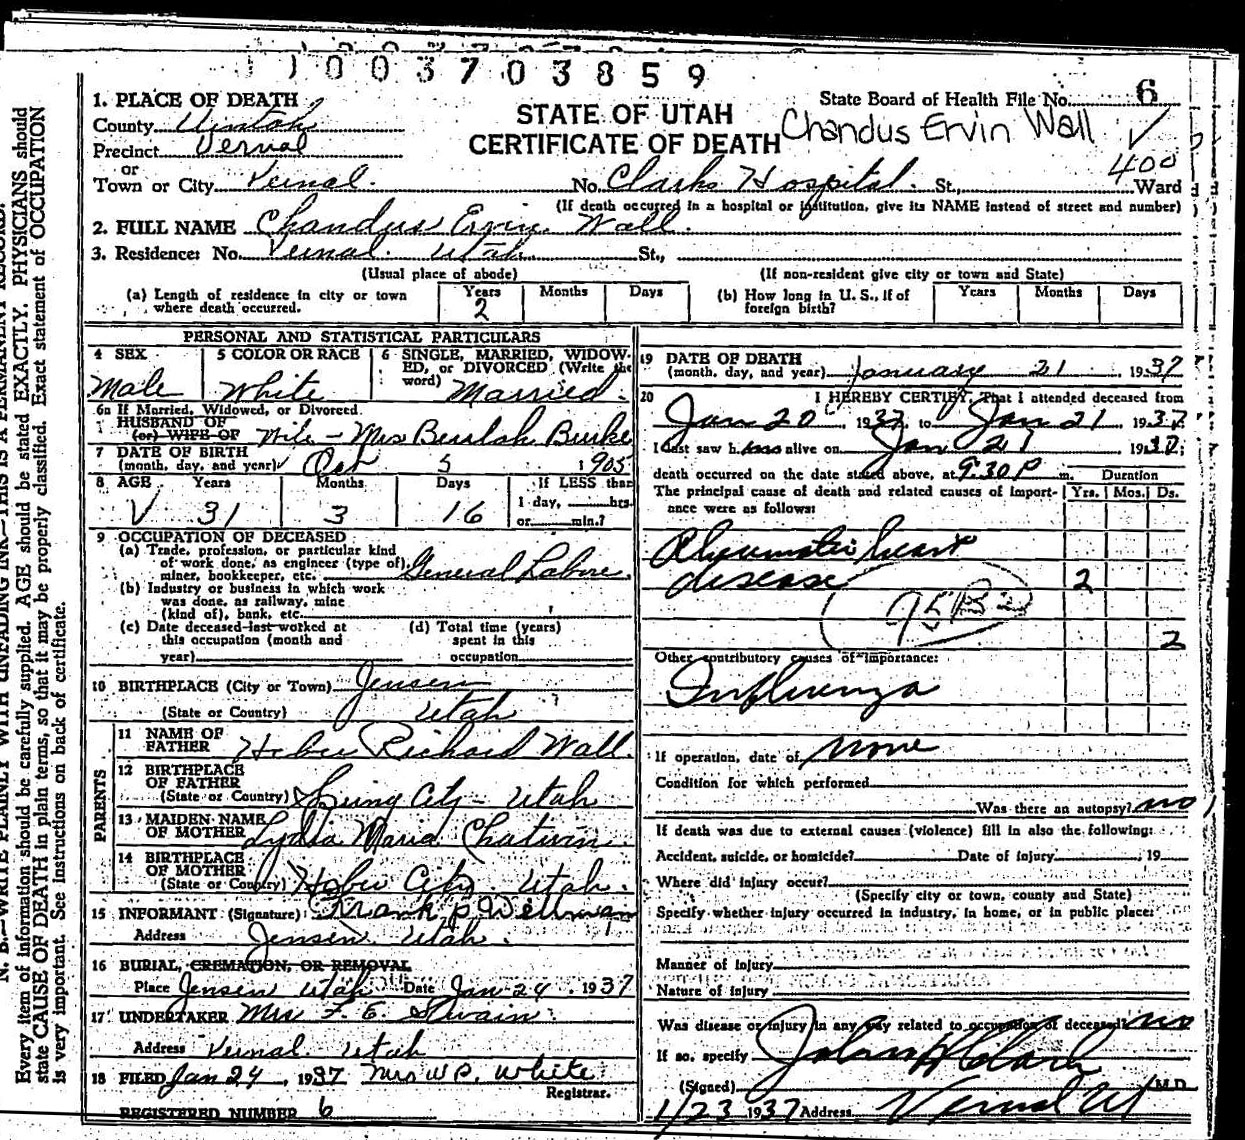 1003703859
1. PLACE OF DEATH
State Board of Health File No. 6
County Uintah
STATE OF UTAH
CERTIFICATE OF DEATH
Chandus Ervin Wall
Precinct Vernal
or
Town or City Vernal. No. Clarks Hospital. St., Ward
400
(If death occurred in a hospital or institution, give its NAME instead of street and number)
2. FULL NAME Chandus Ervin Wall.
3. Residence: No. Vernal. Utah St.,
(Usual place of abode) (If non-resident give city or town and State)
(a) Length of residence in city or town where death occurred. Years 2 Months Days
(b) How long in U. S., if of foreign birth? Years Months Days
PERSONAL AND STATISTICAL PARTICULARS
4 SEX Male
5 COLOR OR RACE White
6 SINGLE, MARRIED, WIDOWED, or DIVORCED (Write the word) Married.
6a If Married, Widowed, or Divorced
HUSBAND OF
(or) WIFE OF Wife - Mrs Beulah Burke
7 DATE OF BIRTH
(month, day, and year) Oct 5 1905
8 AGE Years 31 Months 3 Days 16 If LESS than
1 day, hrs.
or min.?
9 OCCUPATION OF DECEASED
(a) Trade, profession, or particular kind
of work done, as engineer (type of),
miner, bookkeeper, etc. General Labore.
(b) Industry or business in which work
was done, as railway, mine
(kind of), bank, etc.
(c) Date deceased last worked at
this occupation (month and
year)
(d) Total time (years)
spent in this
occupation
10 BIRTHPLACE (City or Town) Jensen
(State or Country) Utah
PARENTS
11 NAME OF
FATHER Heber Richard Wall.
12 BIRTHPLACE
OF FATHER
(State or Country) Spring City - Utah
13 MAIDEN NAME
OF MOTHER Lydia Maria Chatwin.
14 BIRTHPLACE
OF MOTHER
(State or Country) Heber City. Utah.
15 INFORMANT (Signature) Frank P Wellman
Address Jensen Utah.
16 BURIAL, CREMATION, OR REMOVAL
Place Jensen Utah Date Jan 24. 1937
17 UNDERTAKER Mrs F. E. Swain.
Address Vernal Utah
18 FILED Jan 24, 1937 Mrs W P. White
Registrar.
REGISTERED NUMBER 6
19 DATE OF DEATH
(month, day, and year) January 21, 1937
20 I HEREBY CERTIFY, That I attended deceased from
Jan 20 1937, to Jan 21 1937
I last saw him alive on Jan 21 1937;
death occurred on the date stated above, at 9:30 P m. Duration
The principal cause of death and related causes of importance were as follows: Yrs. Mos. Ds.
Rheumatic heart
disease 2
2
Other contributory causes of importance:
Influenza
If operation, date of none
Condition for which performed
Was there an autopsy? no
If death was due to external causes (violence) fill in also the following:
Accident, suicide, or homicide? Date of injury , 19
Where did injury occur?
(Specify city or town, county and State)
Specify whether injury occurred in industry, in home, or in public place:
Manner of injury
Nature of injury
Was disease or injury in any way related to occupation of deceased? no
If so, specify
(Signed) John H Clark M.D.
1/23 1937 Address Vernal Ut
N. B.—WRITE PLAINLY WITH UNFADING INK—THIS IS A PERMANENT RECORD.
Every item of information should be carefully supplied. AGE should be stated EXACTLY. PHYSICIANS should
state CAUSE OF DEATH in plain terms, so that it may be properly classified. Exact statement of OCCUPATION
is very important. See instructions on back of certificate.